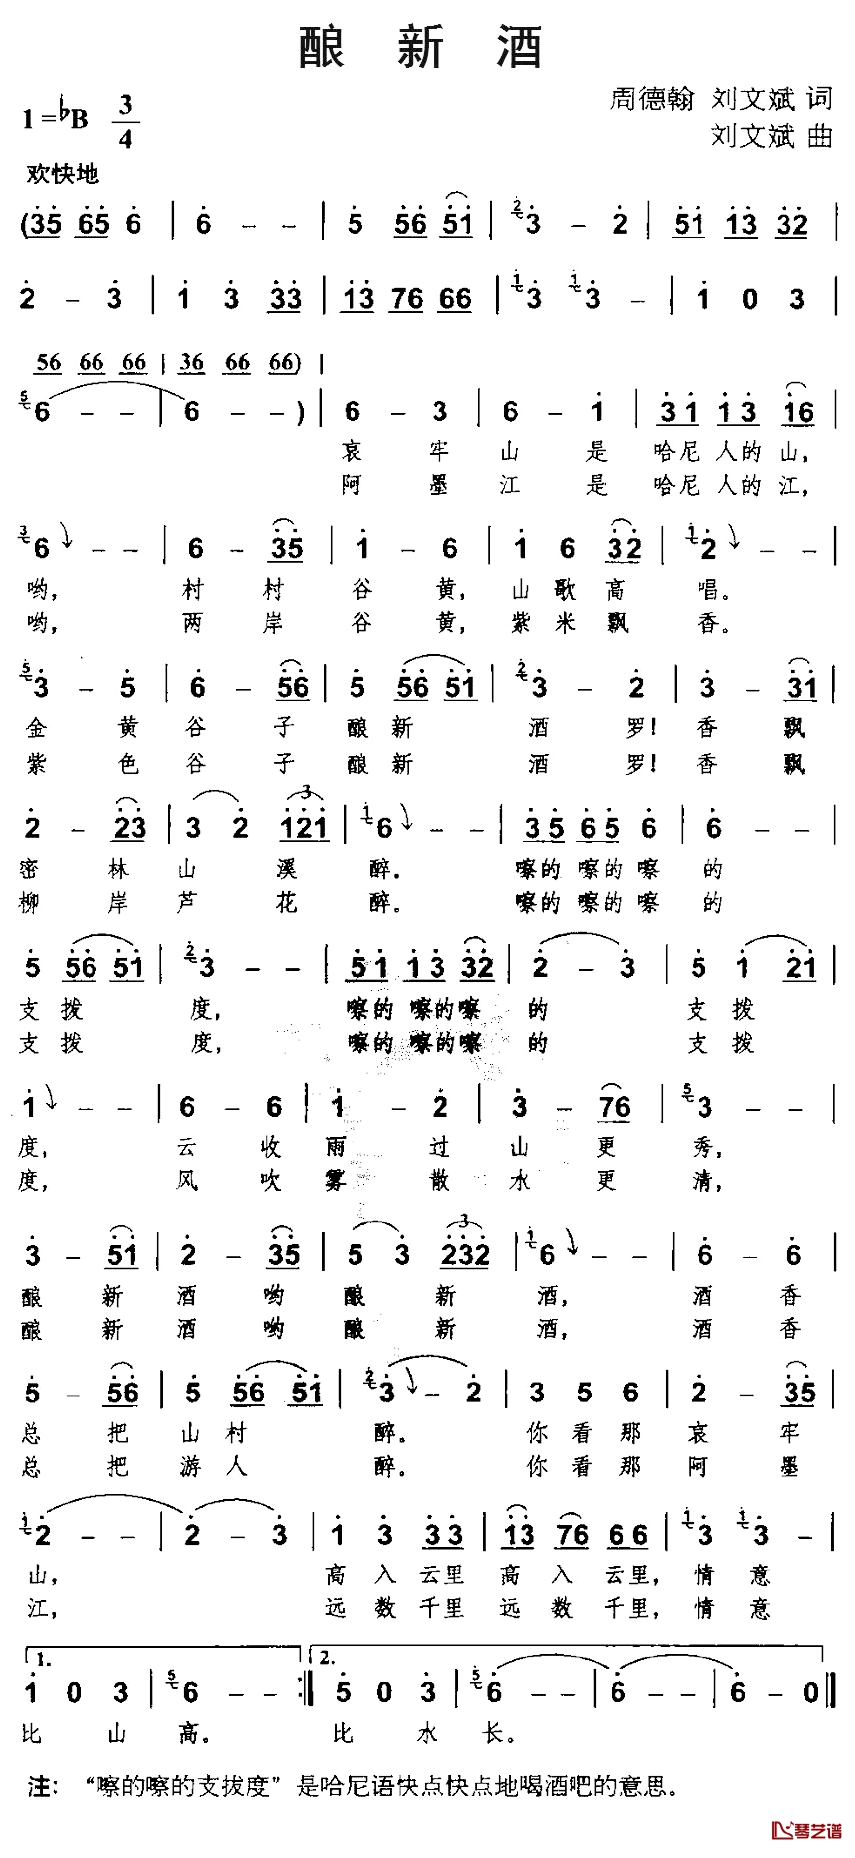 酿 新 酒
周德翰 刘文斌 词
1=♭B 3/4
刘文斌 曲
欢快地
(35 65 6 | 6 - - | 5 56 51 | 2 3 - 2 | 51 13 32 |
2 - 3 | 1 3 33 | 13 76 66 | 1 3 1 3 - | 1 0 3 |
56 66 66 | 36 66 66) |
5 6 - - | 6 - - ) | 6 - 3 | 6 - 1 | 31 13 16 |
哀 牢 山 是 哈尼 人的 山,
阿 墨 江 是 哈尼 人的 江,
3 6 - - | 6 - 35 | 1 - 6 | 1 6 32 | 1 2 - - |
哟, 村 村 谷 黄, 山 歌 高 唱。
哟, 两 岸 谷 黄, 紫 米 飘 香。
5 3 - 5 | 6 - 56 | 5 56 51 | 2 3 - 2 | 3 - 31 |
金 黄 谷 子 酿 新 酒 罗! 香 飘
紫 色 谷 子 酿 新 酒 罗! 香 飘
2 - 23 | 3 2 3 121 | 1 6 - - | 35 65 6 | 6 - - |
密 林 山 溪 醉。 嚓的 嚓的 嚓 的
柳 岸 芦 花 醉。 嚓的 嚓的 嚓 的
5 56 51 | 2 3 - - | 51 13 32 | 2 - 3 | 5 1 21 |
支 拨 度, 嚓的 嚓的 嚓 的 支 拨
支 拨 度, 嚓的 嚓的 嚓 的 支 拨
1 - - | 6 - 6 | 1 - 2 | 3 - 76 | 5 3 - - |
度, 云 收 雨 过 山 更 秀,
度, 风 吹 雾 散 水 更 清,
3 - 51 | 2 - 35 | 5 3 3 232 | 1 6 - - | 6 - 6 |
酿 新 酒 哟 酿 新 酒, 酒 香
酿 新 酒 哟 酿 新 酒, 酒 香
5 - 56 | 5 56 51 | 2 3 - 2 | 3 5 6 | 2 - 35 |
总 把 山 村 醉。 你 看 那 哀 牢
总 把 游 人 醉。 你 看 那 阿 墨
1 2 - - | 2 - 3 | 1 3 33 | 13 76 66 | 1 3 2 3 - |
山, 高 入 云里 高 入 云里, 情 意
江, 远 数 千里 远 数 千里, 情 意
1. 2.
1 0 3 | 5 6 - - :| 5 0 3 | 5 6 - - | 6 - - | 6 - 0 ||
比 山 高。 比 水 长。
注: “嚓的嚓的支拔度”是哈尼语快点快点地喝酒吧的意思。
琴艺谱